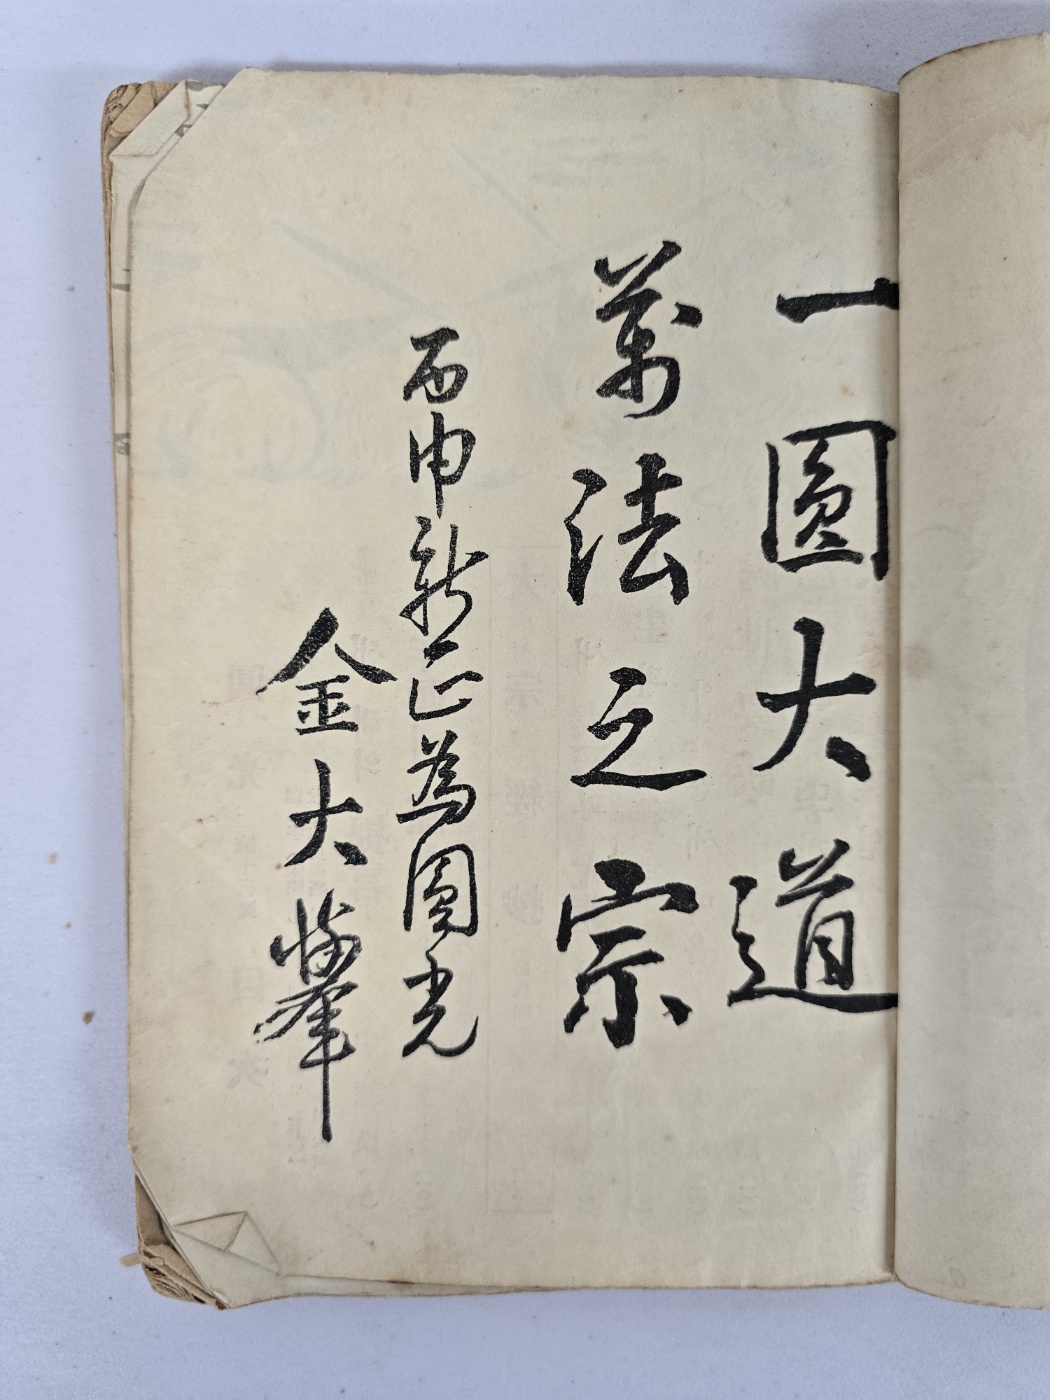 一圓大道
萬法之宗
丙申新正為圓光
金大擧